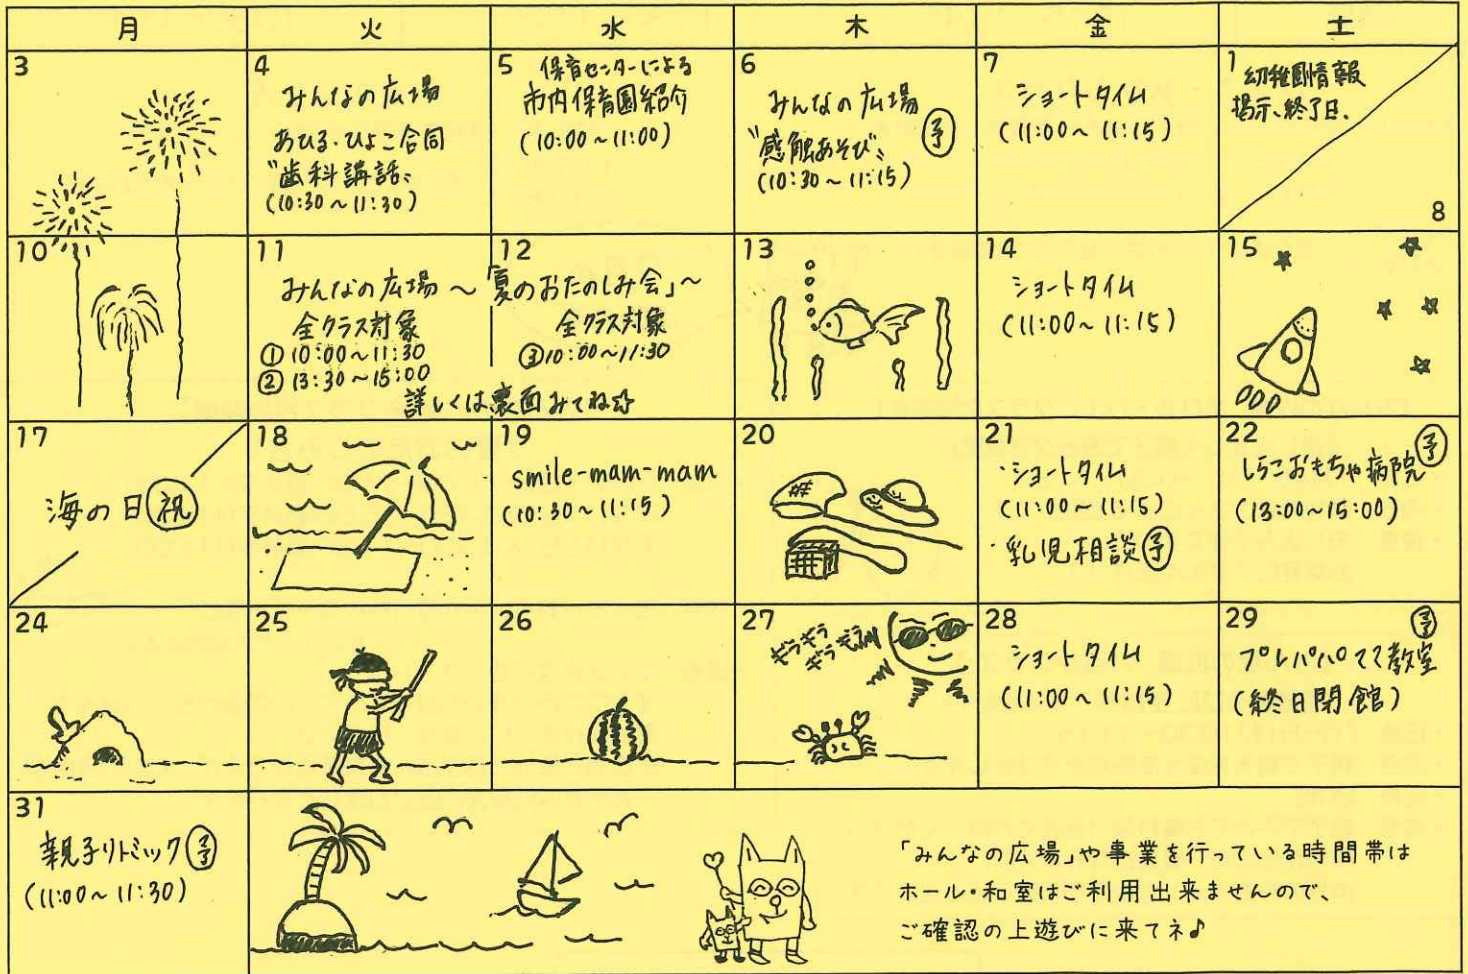 月 火 水 木 金 土
3
4
みんなの広場
あひる・ひよこ合同
〝歯科講話〟
(10:30～11:30)
5
保育センターによる
市内保育園紹介
(10:00～11:00)
6
みんなの広場
〝感触あそび〟 予
(10:30～11:15)
7
ショートタイム
(11:00～11:15)
1
幼稚園情報
掲示、終了日.
8
10
11
12
みんなの広場～「夏のおたのしみ会」～
全クラス対象
① 10:00～11:30
② 13:30～15:00
全クラス対象
③ 10:00～11:30
詳しくは裏面みてね☆
13
14
ショートタイム
(11:00～11:15)
15
17
海の日 祝
18
19
smile-mam-mam
(10:30～11:15)
20
21
・ショートタイム
(11:00～11:15)
・乳児相談 予
22
予
しらこおもちゃ病院
(13:00～15:00)
24
25
26
27
ギラギラ
ギラギラ
28
ショートタイム
(11:00～11:15)
29
予
プレパパママ教室
(終日閉館)
31
親子リトミック 予
(11:00～11:30)
「みんなの広場」や事業を行っている時間帯は
ホール・和室はご利用出来ませんので、
ご確認の上遊びに来てネ♪